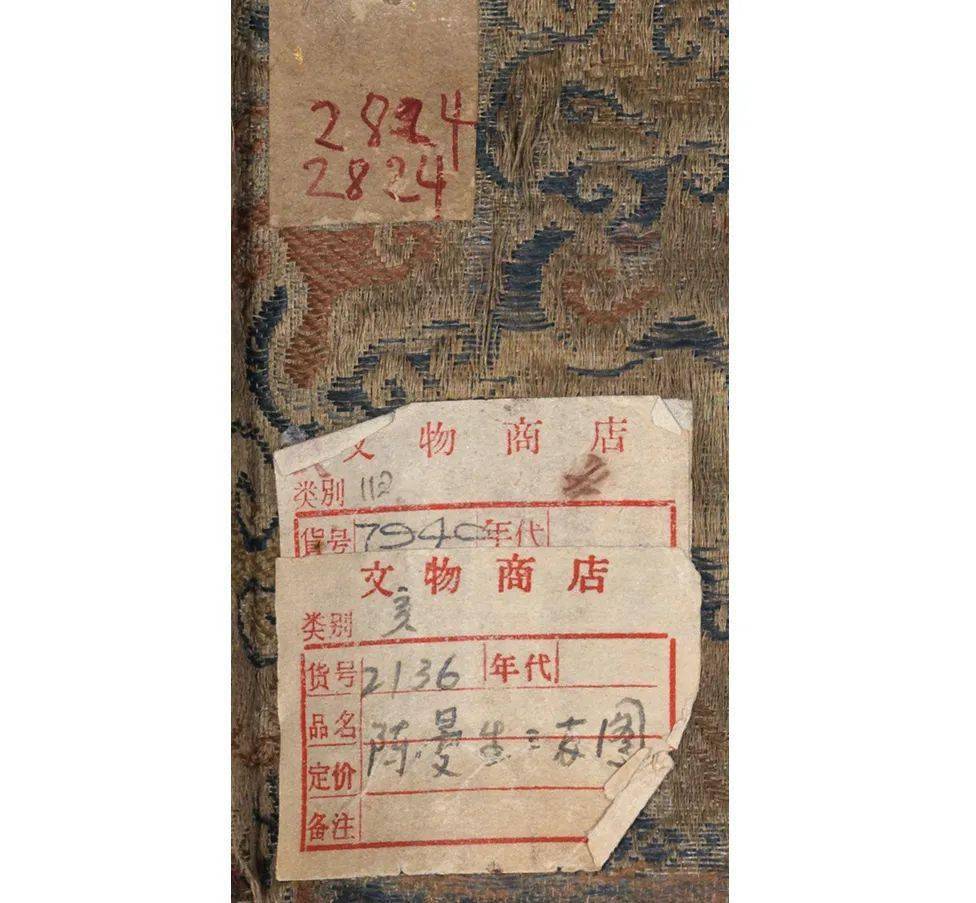 2824
2824
文物商店
类別 112
貨号 7940 年代
文物商店
类别
货号 2136 年代
品名 陈曼生三友图
定价
备注